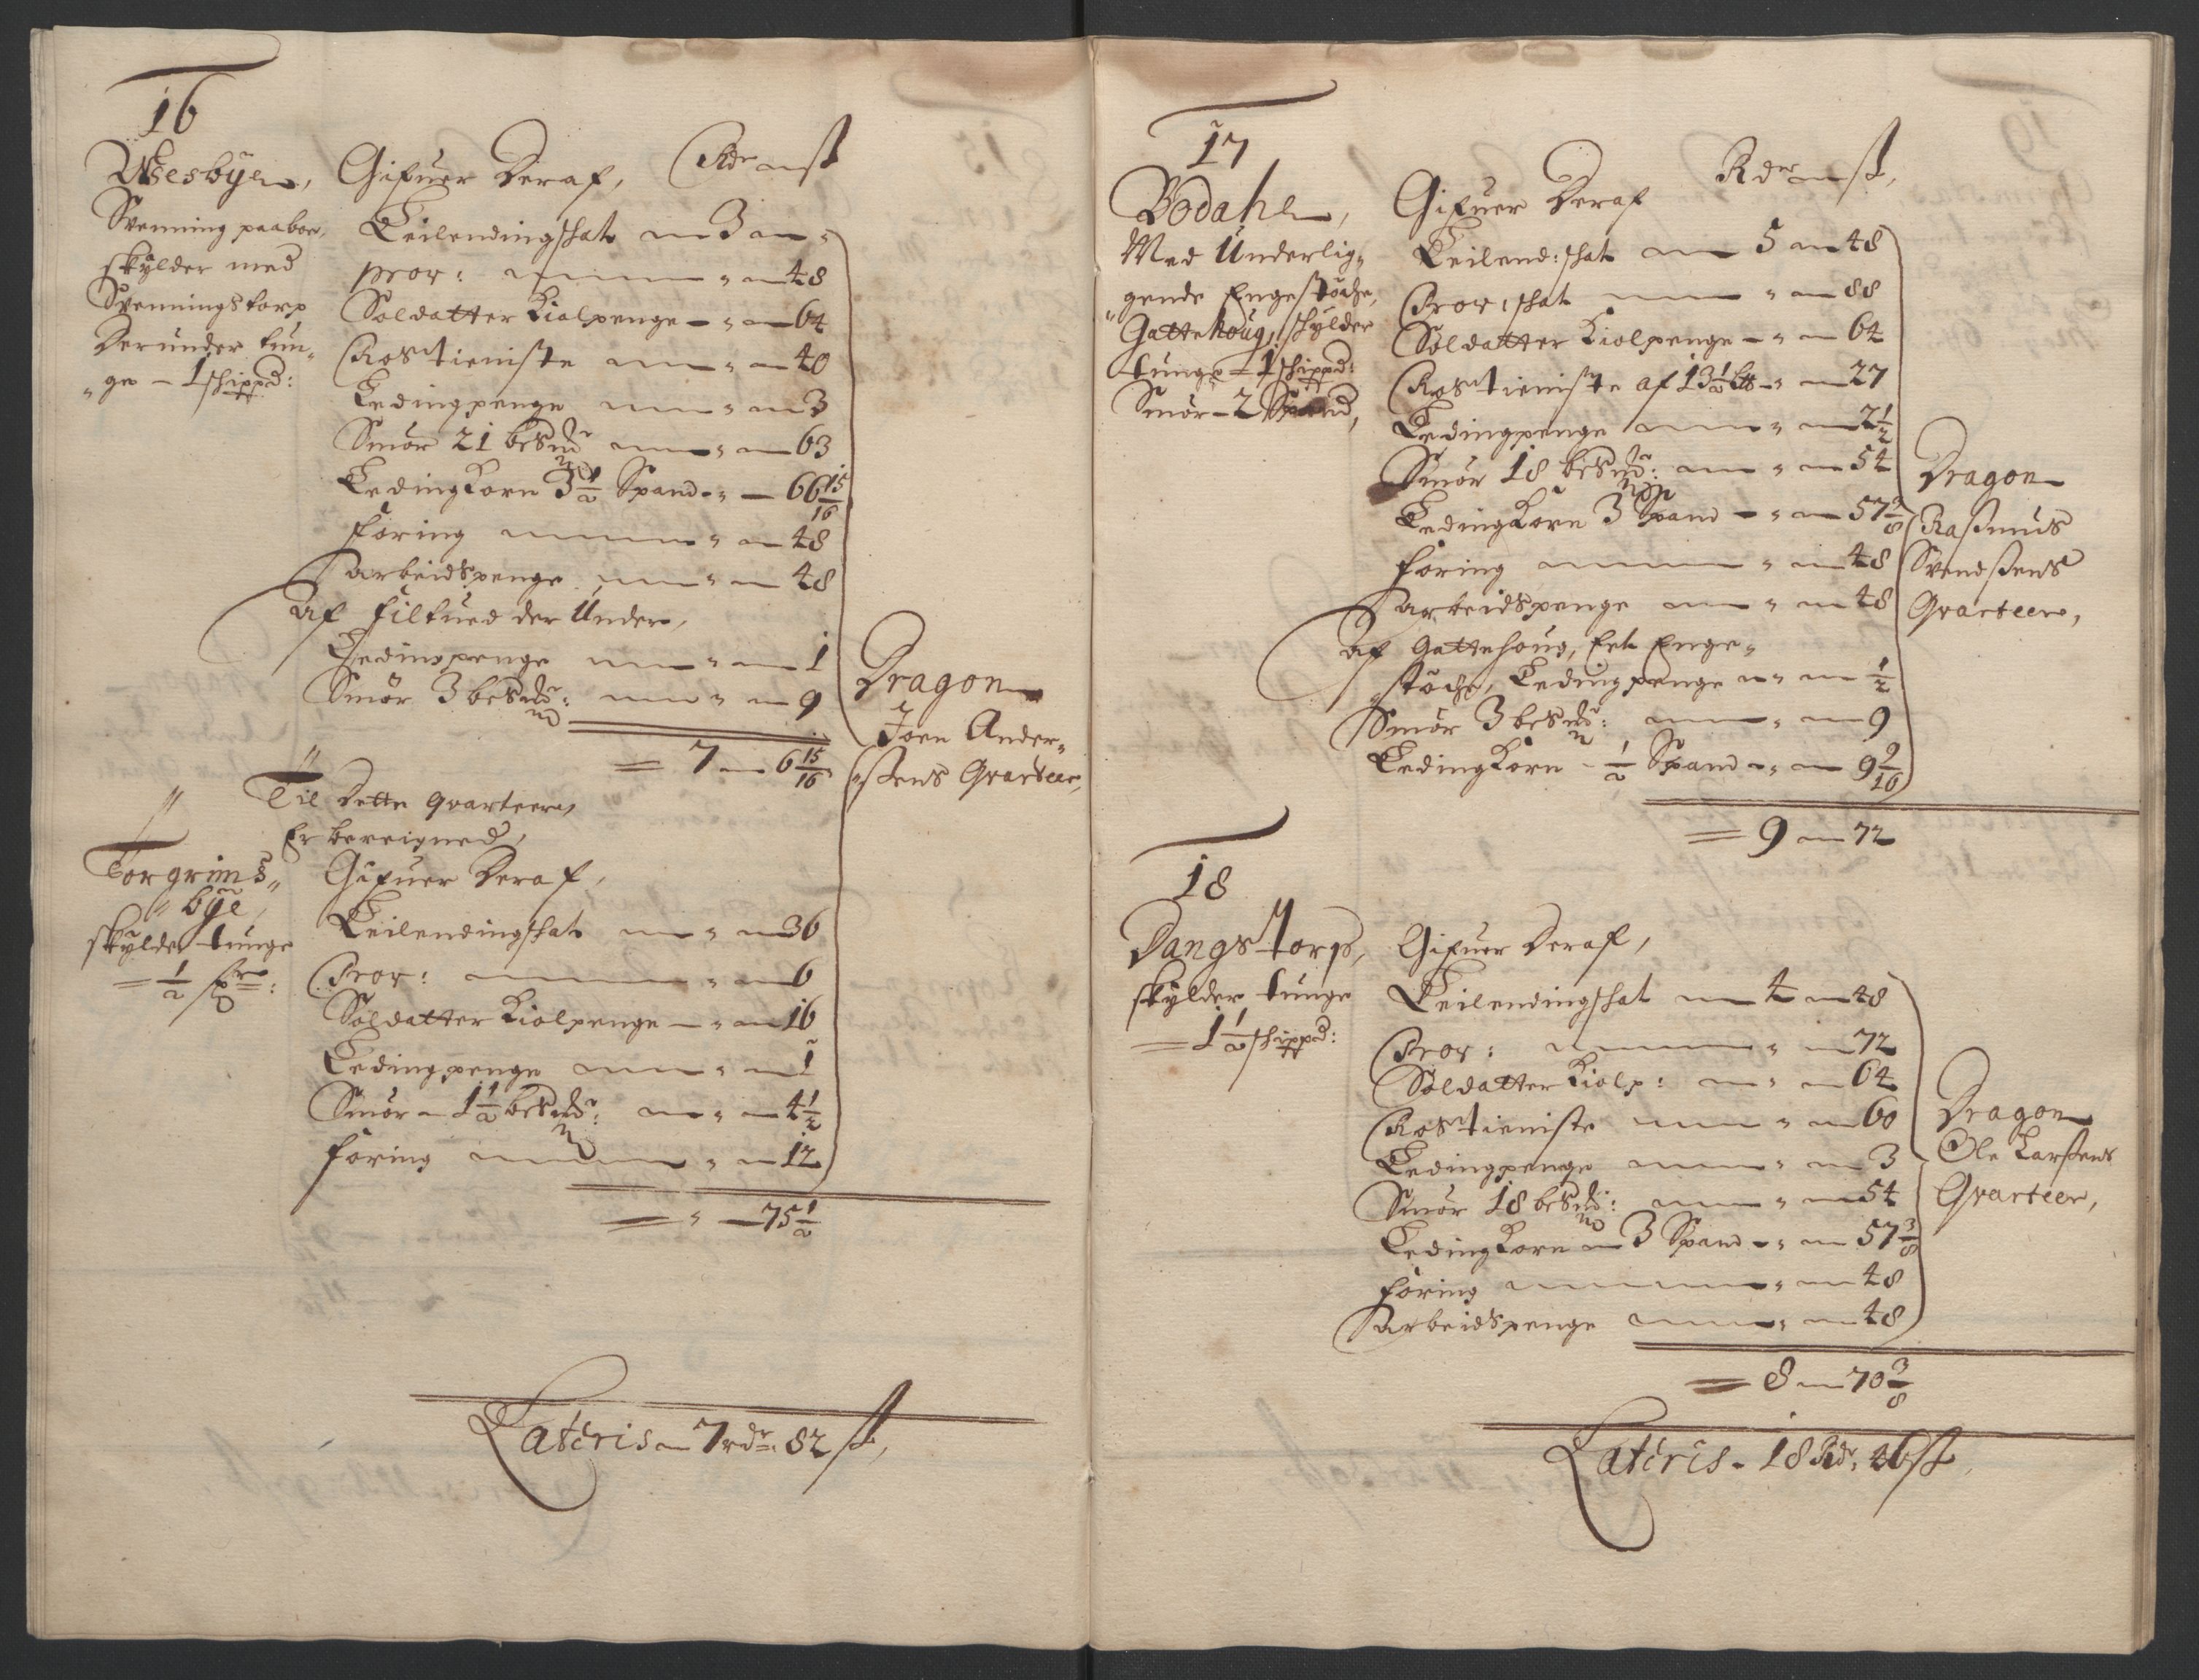 16
Wesbyen,
Svenning paaboe,
skylder med
Svenningstorp
Derunder tun„
„ge – 1 schippd:
Gifuer Deraf, Rdr – ß
Leilendingschat – 3 – „
prov: – „ – 48
Soldatter Kiolpenge – „ – 64
Rostieniste – „ – 40
Ledingpenge – „ – 3
Smør 21 besmdr – „ – 63
Leding Korn 3½ Spand – „ – 66 15/16
foring – „ – 48
arbeidspenge – „ – 48
Af filtued der Under,
Ledingpenge – „ – 1
Smør 3 besmdr: – „ – 9
= 7 – 6 15/16
Dragon
Joen Ander„
„ßens Qvarteer,
Til Dette Qvarteer,
Er bereigned,
Torgrims„
„bye,
skylder tunge
= ½
Gifuer Deraf,
Leilendingschat – „ – 36
Prov: – „ – 6
Soldatter Kiolpenge – „ – 16
Ledingpenge – „ – 1
Smør – 1½ besmdr: – „ – 4½
foring – „ – 12
= „ – 75½
Lateris – 7 rdr. 82 ß,
17
Bodahl,
Med Underlig„
gende Engestøche,
„Gattehoug, skylder
tunge – 1 schippd:
Smør – 2 Spand,
Gifuer Deraf Rdr – ß,
Leilend: schat – 5 – 48
Prov: schat – „ – 88
Soldatter Kiolpenge – „ – 64
Rostieniste af 13½ – „ – 27
Ledingpenge – „ – 2½
Smør 18 besmd: – „ – 54
Leding Korn 3 Spand – „ – 57 3/8
foring – „ – 48
arbeidspenge – „ – 48
Af Gattehoug, Eet Enge„
støche, Ledingpenge – „ – ½
Smør 3 besmdr: – „ – 9
Leding Korn – ½ Spand – „ – 9 9/16
= 9 – 72
Dragon
Raßmus
Svendßens
Qvarteer,
18
Dangstorp,
skylder tunge
= 1½ schippd:
Gifuer Deraf,
Leilendingschat – 4 – 48
Prov: – „ – 72
Soldatter Kiolp: – „ – 64
Rostieniste – „ – 60
Ledingpenge – „ – 3
Smør 18 besmd: – „ – 54
Leding Korn – 3 Spand – „ – 57 3/8
foring – „ – 48
arbeidspenge – „ – 48
= 8 – 70 3/8
Dragon
Ole Larßens
Qvarteer,
Lateris – 18 Rdr. 46 ß,